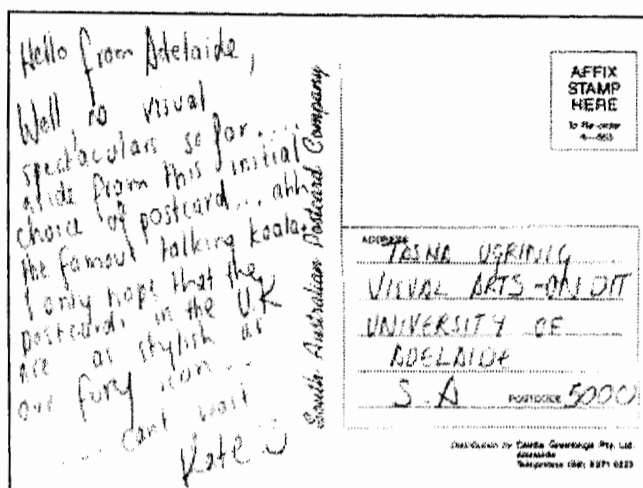 Hello from Adelaide,
Well no visual
spectaculars so far....
aside from this initial
choice of postcard... ahh
the famous talking koala.
I only hope that the
postcards in the U.K
are as stylish as
our fury icon...
.... cant wait
Kate
South Australian Postcard Company
AFFIX
STAMP
HERE
To Re-order
ADDRESS
UGRINIC
VISUAL ARTS - ON DIT
UNIVERSITY OF
ADELAIDE
S.A POSTCODE 5000
Distribution by Greetings Pty. Ltd.
Adelaide
Telephone (08) 8271 0223